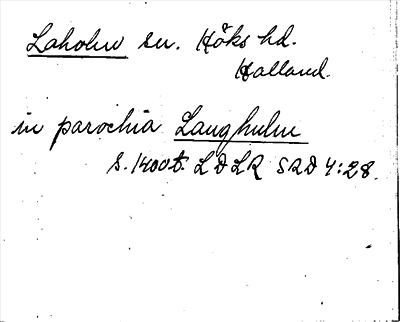 Laholm sn. Höks hd.
Halland.
in parochia Laughulm
s. 1400t. LDLR SRD 4:28.